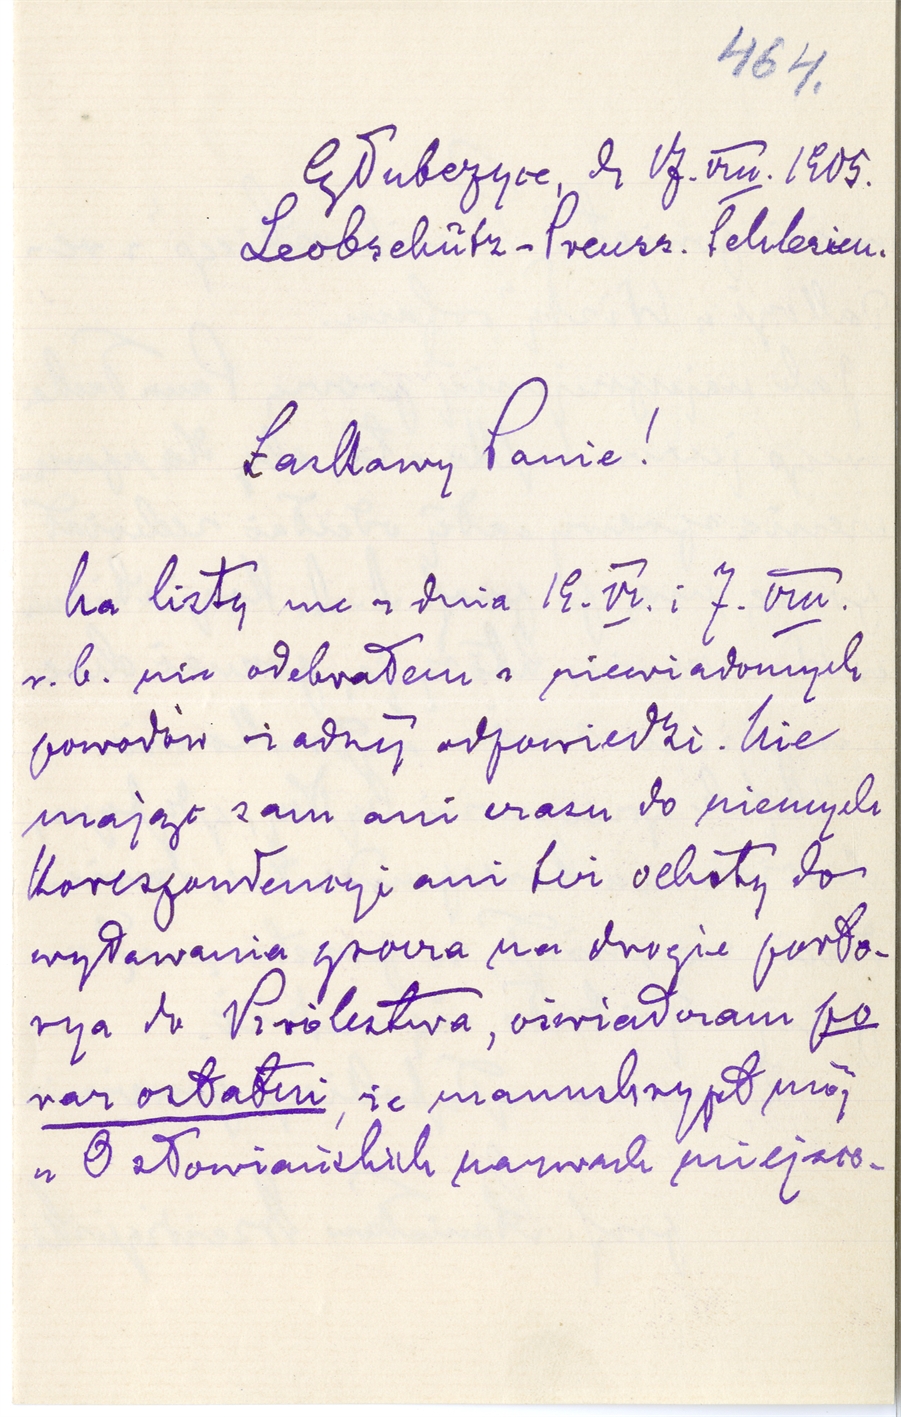 464.
Głubczyce, d. 17. VIII. 1905.
Leobschütz - Preuss. Schlesien.
Łaskawy Panie!
Na listy me z dnia 19. VI. i 7. VIII.
r. b. nie odebrałem z niewiadomych
powodów żadnéj odpowiedzi. Nie
mając sam ani czasu do niemych
korespondencyi ani też ochoty do
wydawania grosza na drogie porto-
rya do Królestwa, oświadczam po
raz ostatni, że manuskrypt mój
„O słowiańskich nazwach miejsco-